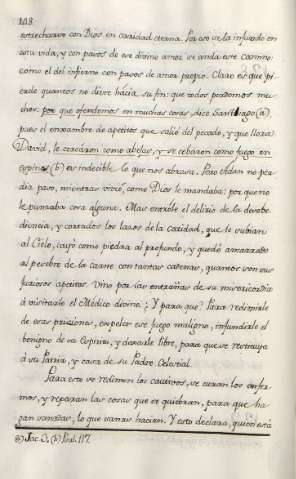 108
estrecharse con Dios en caridad eterna. Por eso se la infundio en
esta vida, y con pasos de ese divino amor se anda este Camino:
como el del infierno con pasos de amor propio. Claro es que pier-
de quantos no dirve hacia su fin: que todos perdemos mu-
chos: porque ofendemos en muchas cosas, dice Santiago (a),
pues el enxambre de apetitos que salió del pecado, y que llora
David, le cercáron como abejas, y se cebaron como fuego en
espinas (b) es indecible lo que nos abrasa. Pero Adan no per-
dia paso, mientras vivió como Dios le mandaba: porque no
le punzaba cosa alguna. Mas entróle el delirio de la desobe-
diencia, y cortados los lazos de la caridad, que le subian
al Cielo, cayó como piedra al profundo, y quedó amarrado
al pesebre de la carne con tantas cadenas, quantos son sus
furiosos apetitos. Vino por las entrañas de su misericordia
á visitarle el Médico divino; Y para que? Para redimirle
de esas prisiones, expeler ese fuego maligno, infundirle el
benigno de su Espiritu, y dexarle libre, para que se restituya
á su Patria, y casa de su Padre Celestial.
Para esto se redimen los cautivos, se curan los enfer-
mos, y reparan las cosas que se quiebran, para que ha-
gan sanas, lo que sanas hacian. Y esto declara, quien está
(a) Jac. 3. (b) Psal. 117.